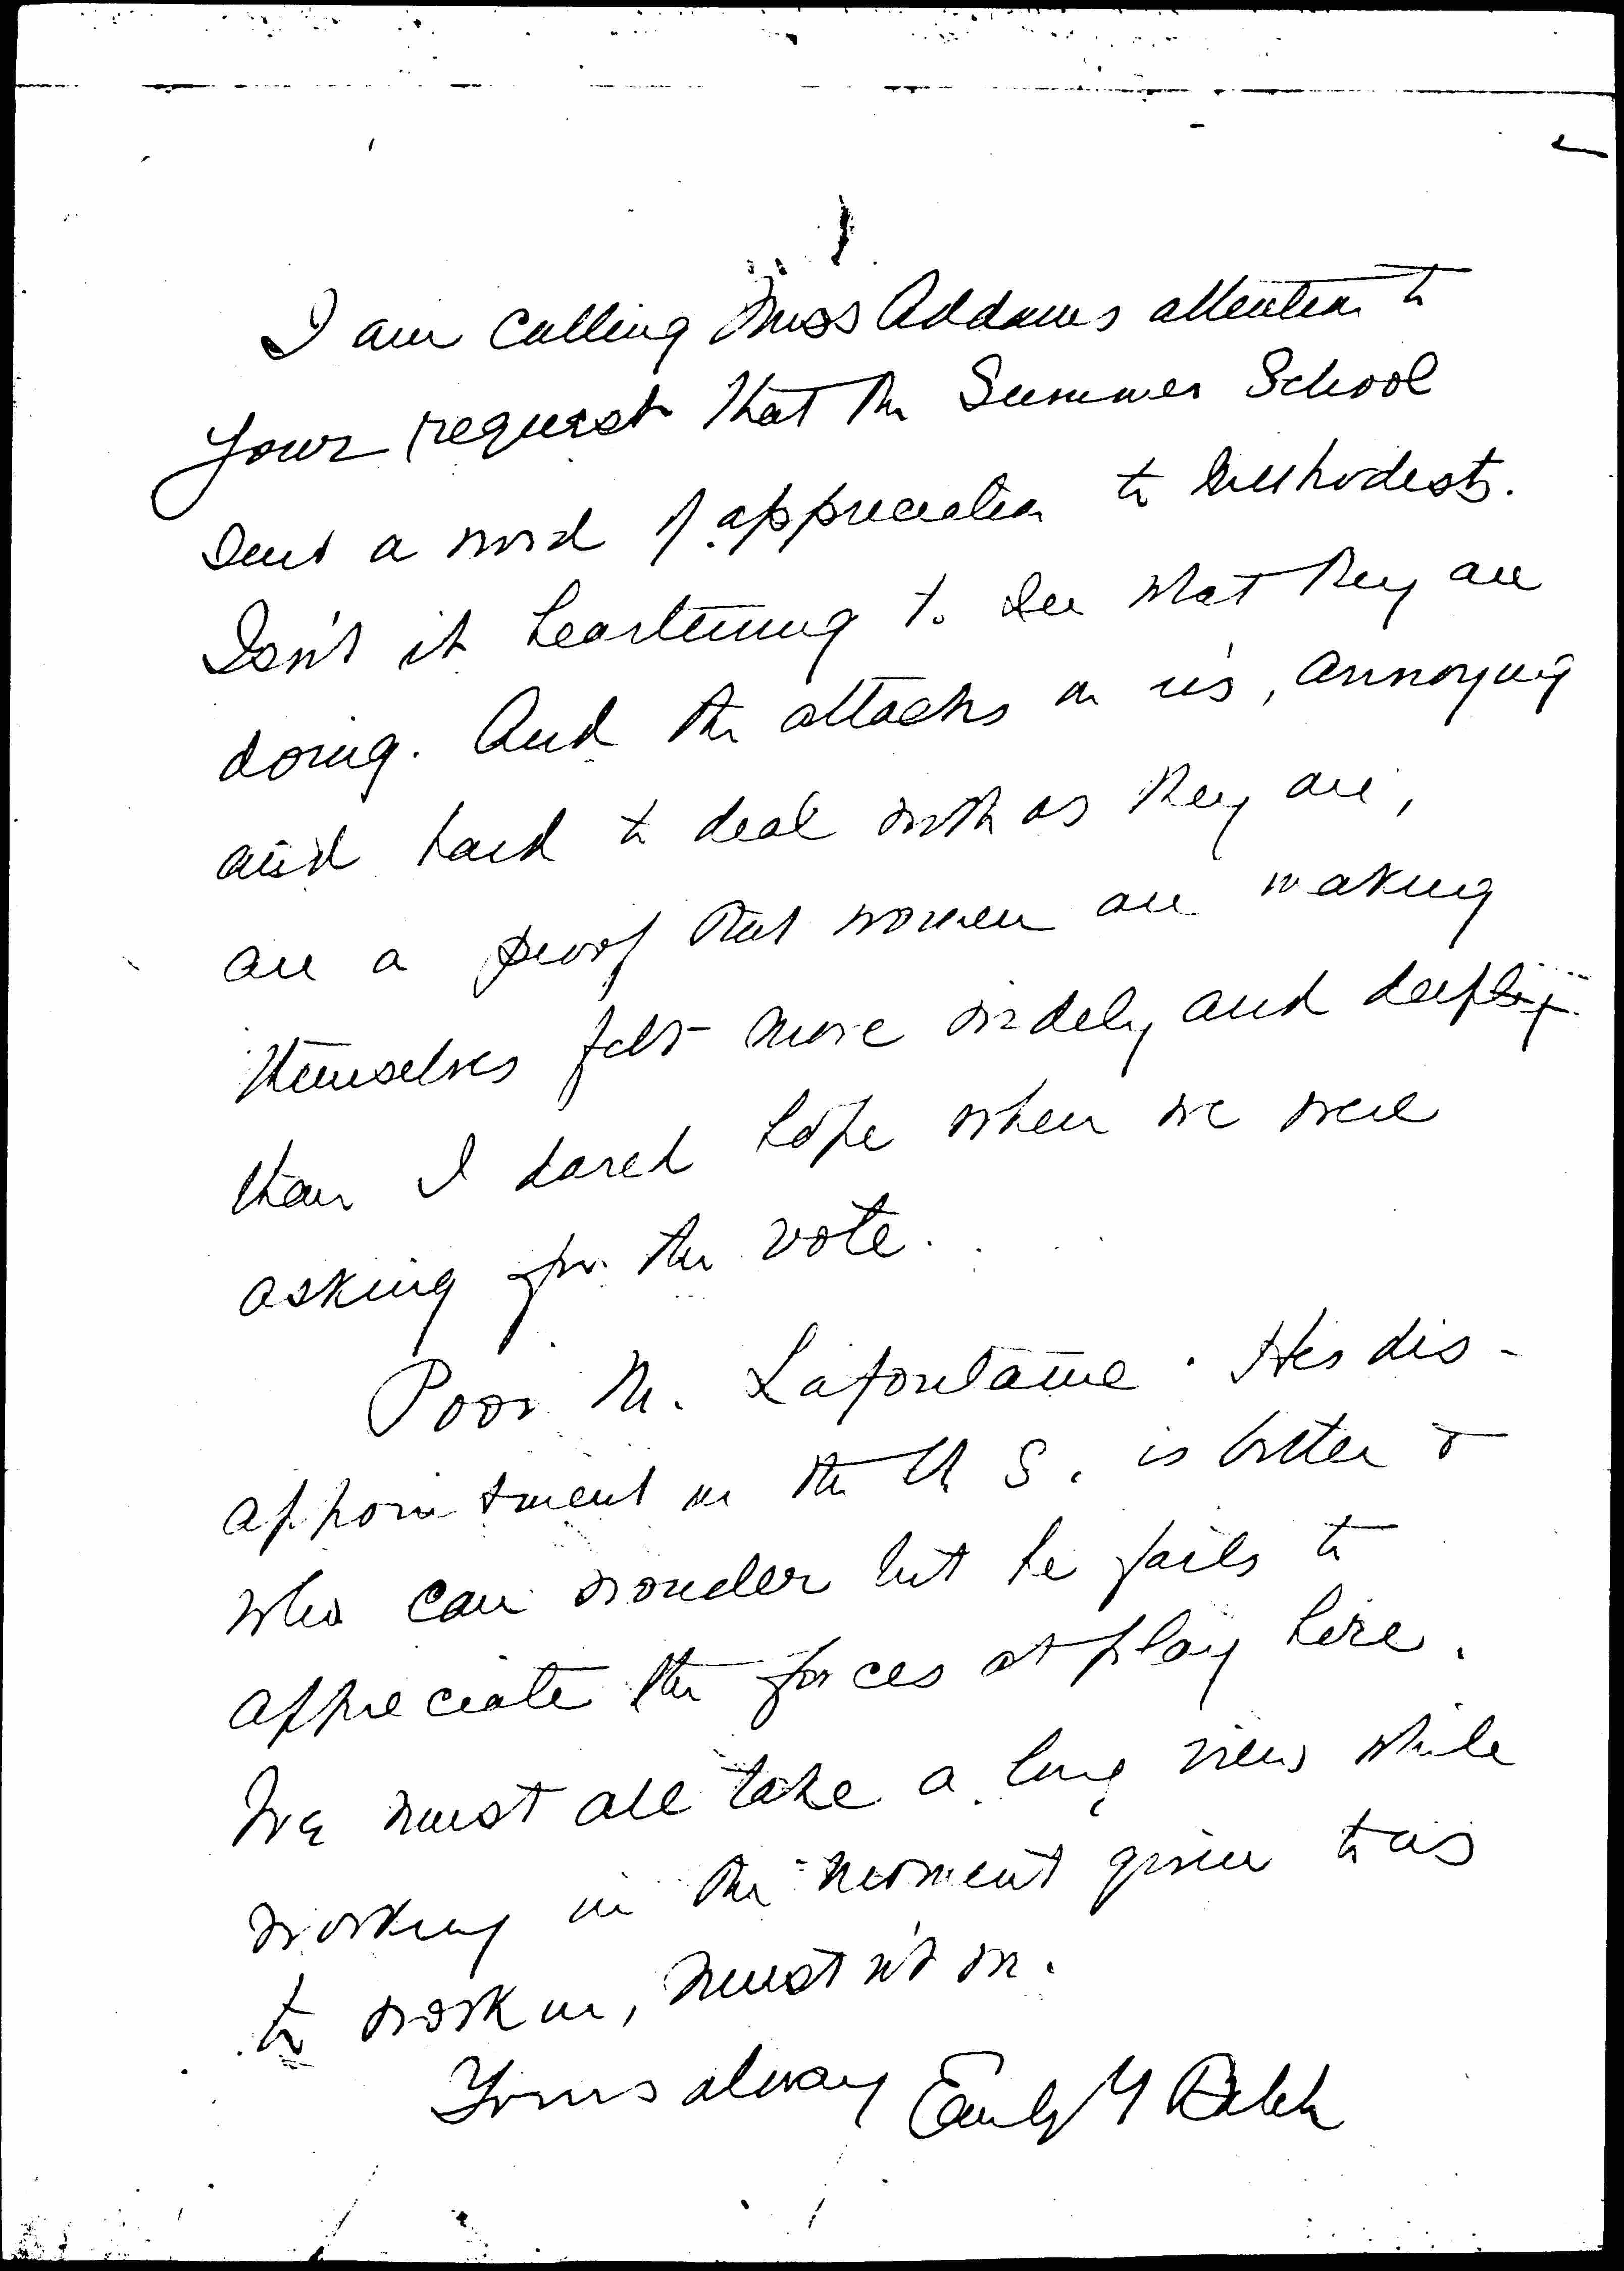 I am calling Miss Addams attention to
your request that the Summer School
send a word of appreciation to Methodists.
Isn't it heartening to see what they are
doing. And the attacks on us, annoying
and hard to deal with as they are,
are a proof that women are making
themselves felt more widely and deeply
than I dared hope when we were
asking for the vote.
Poor M. Lafontaine. His dis-
appointment in the U S. is bitter &
who can wonder but he fails to
appreciate the forces at play here.
We must all take a long view while
working in the moment given to us
to work in, mustn't we.
Yours always Emily G Balch